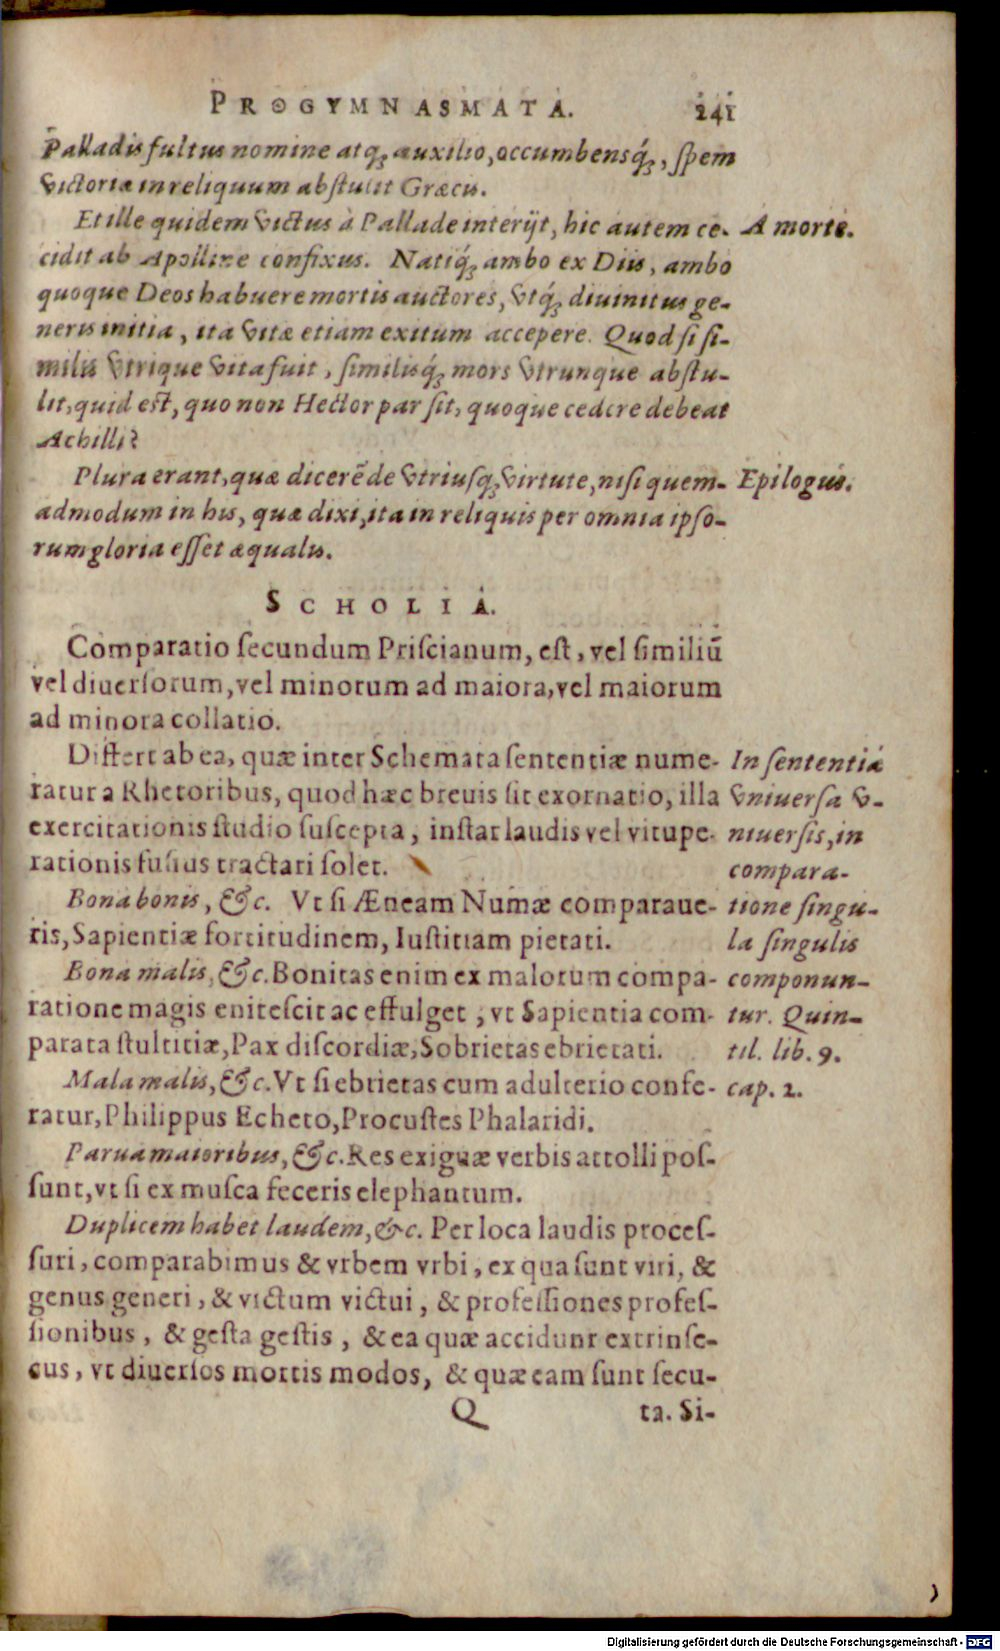 PROGYMNASMATA. 241
Palladis fultus nomine atq́; auxilio, occumbensq́;, spem
victoriæ in reliquum abstulit Græcis.
Et ille quidem victus à Pallade interijt, hic autem ce-
A morte.
cidit ab Apolline confixus. Natiq́; ambo ex Diis, ambo
quoque Deos habuere mortis auctores, vtq́; diuinitus ge-
neris initia, ita vitæ etiam exitum accepere. Quod si si-
milis vtrique vita fuit, similisq́; mors vtrunque abstu-
lit, quid est, quo non Hector par sit, quoque cedere debeat
Achilli?
Plura erant, quæ dicerẽ de vtriusq; virtute, nisi quem-
Epilogus.
admodum in his, quæ dixi, ita in reliquis per omnia ipso-
rum gloria esset æqualis.
SCHOLIA.
Comparatio secundum Priscianum, est, vel similiũ
vel diuersorum, vel minorum ad maiora, vel maiorum
ad minora collatio.
Differt ab ea, quæ inter Schemata sententiæ nume-
ratur a Rhetoribus, quod hæc breuis sit exornatio, illa
exercitationis studio suscepta, instar laudis vel vitupe-
rationis fusius tractari solet.
Bona bonis, &c. Vt si Æneam Numæ comparaue-
ris, Sapientiæ fortitudinem, Iustitiam pietati.
Bona malis, &c. Bonitas enim ex malorum compa-
ratione magis enitescit ac effulget, vt Sapientia com-
parata stultitiæ, Pax discordiæ, Sobrietas ebrietati.
Mala malis, &c. Vt si ebrietas cum adulterio confe-
ratur, Philippus Echeto, Procustes Phalaridi.
In sententiâ
vniuersa v-
niuersis, in
compara-
tione singu-
la singulis
componun-
tur. Quin-
til. lib. 9.
cap. 2.
Parua maioribus, &c. Res exiguæ verbis attolli pos-
sunt, vt si ex musca feceris elephantum.
Duplicem habet laudem, &c. Per loca laudis proces-
suri, comparabimus & vrbem vrbi, ex qua sunt viri, &
genus generi, & victum victui, & professiones profes-
sionibus, & gesta gestis, & ea quæ accidunt extrinse-
cus, vt diuersos mortis modos, & quæ eam sunt secu-
Q ta. Si-
Digitalisierung gefördert durch die Deutsche Forschungsgemeinschaft - DFG